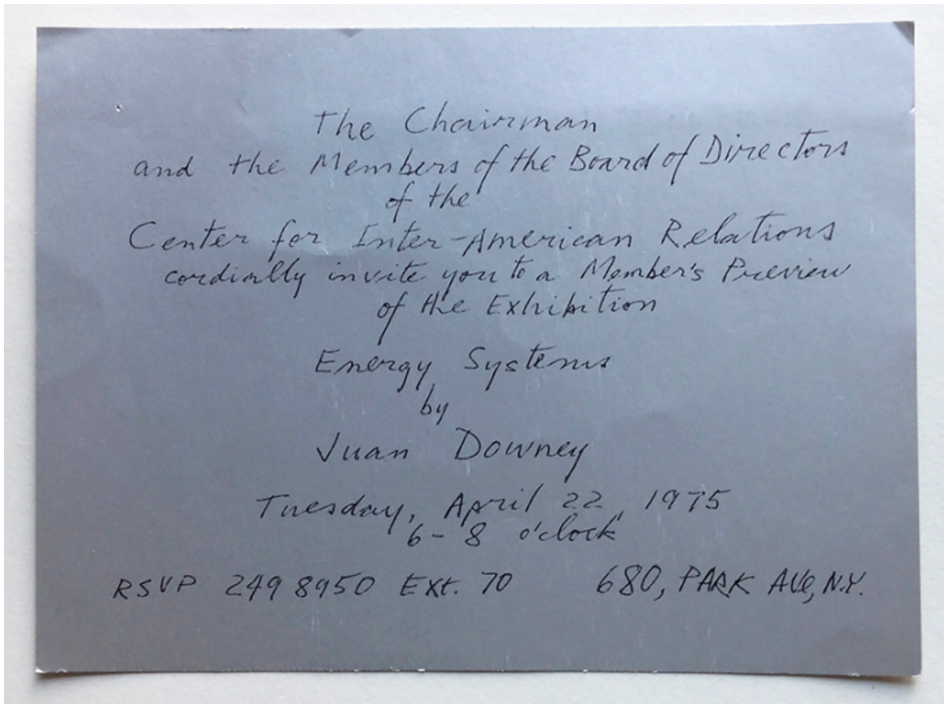 The Chairman
and the Members of the Board of Directors
of the
Center for Inter-American Relations
cordially invite you to a Member's Preview
of the Exhibition
Energy Systems
by
Juan Downey
Tuesday, April 22, 1975
6-8 o'clock
RSVP 249 8950 Ext. 70 680, PARK AVe, N.Y.